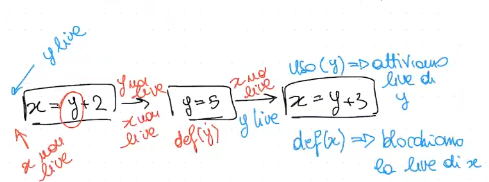 y live
x = y + 2
x non live
y non live
x non live
y = 5
def(y)
x non live
y live
uso (y) => attiviamo
live di
y
x = y + 3
def(x) => blocchiamo
la live di x